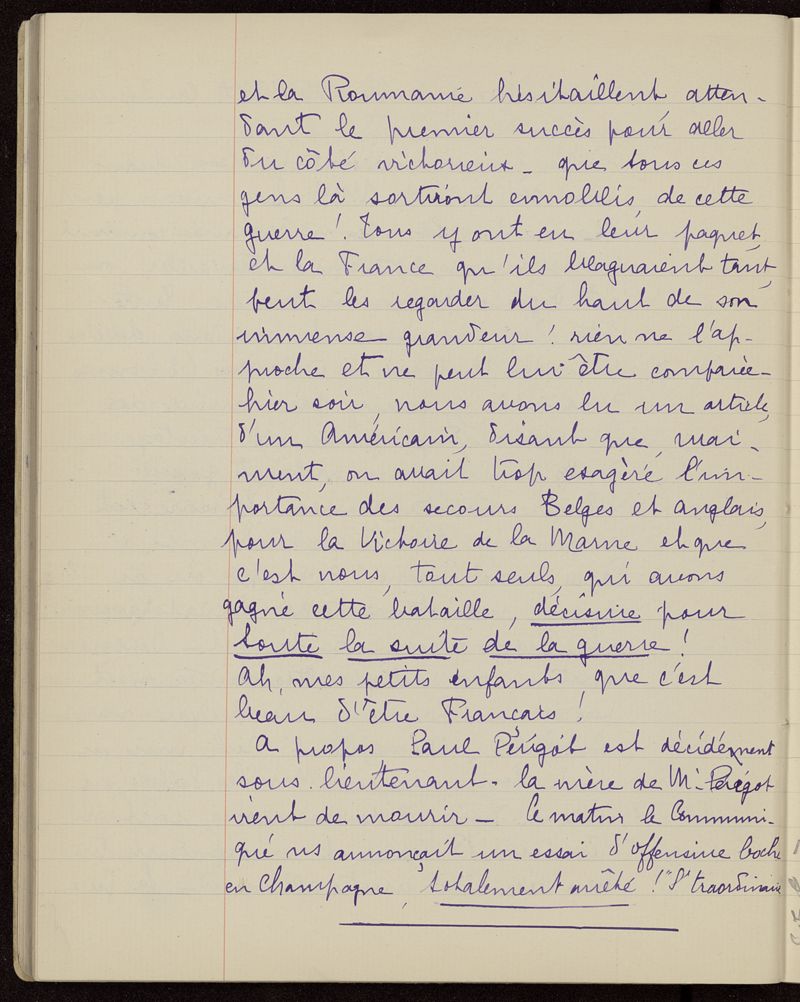 et la Roumanie hésitaillent atten-
dant le premier succès pour aller
du côté victorieux - que tous ces
gens là sortiront ennoblis, de cette
guerre! Tous y ont eu leur paquet,
et la France qu'ils blaguaient tant,
peut les regarder du haut de son
immense grandeur! rien ne l'ap-
proche et ne peut lui être comparée -
hier soir, nous avons lu un article,
d'un Américain, disant que, vrai-
ment, on avait trop exagéré l'im-
portance des secours Belges et anglais,
pour la Victoire de la Marne et que
c'est nous, tout seuls, qui avons
gagné cette bataille, décisive pour
toute la suite de la guerre!
Ah, mes petits enfants, que c'est
beau d'être Français!
A propos, Paul Périgot est décidément
sous-lieutenant - la mère de Mr Périgot
vient de mourir - Ce matin le Communi-
qué ns annonçait un essai d'offensive boche
en Champagne, totalement arrêté! "S'traordinaire